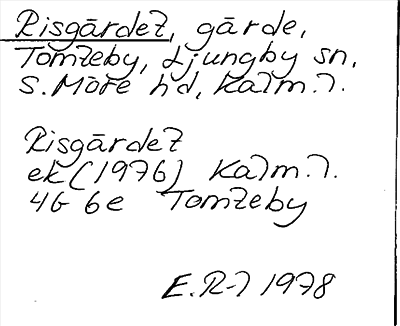 Risgärdet, gärde,
Tomteby, Ljungby sn,
S. Möre hd, Kalm. l.
Risgärdet
ek (1976) Kalm. l.
4G 6e Tomteby
E. R-l 1978